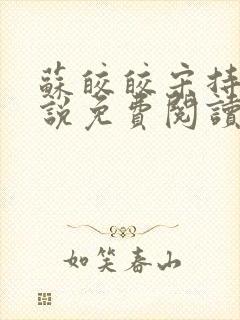 蘇皎皎宋持
說免費閱讀
如笑春山